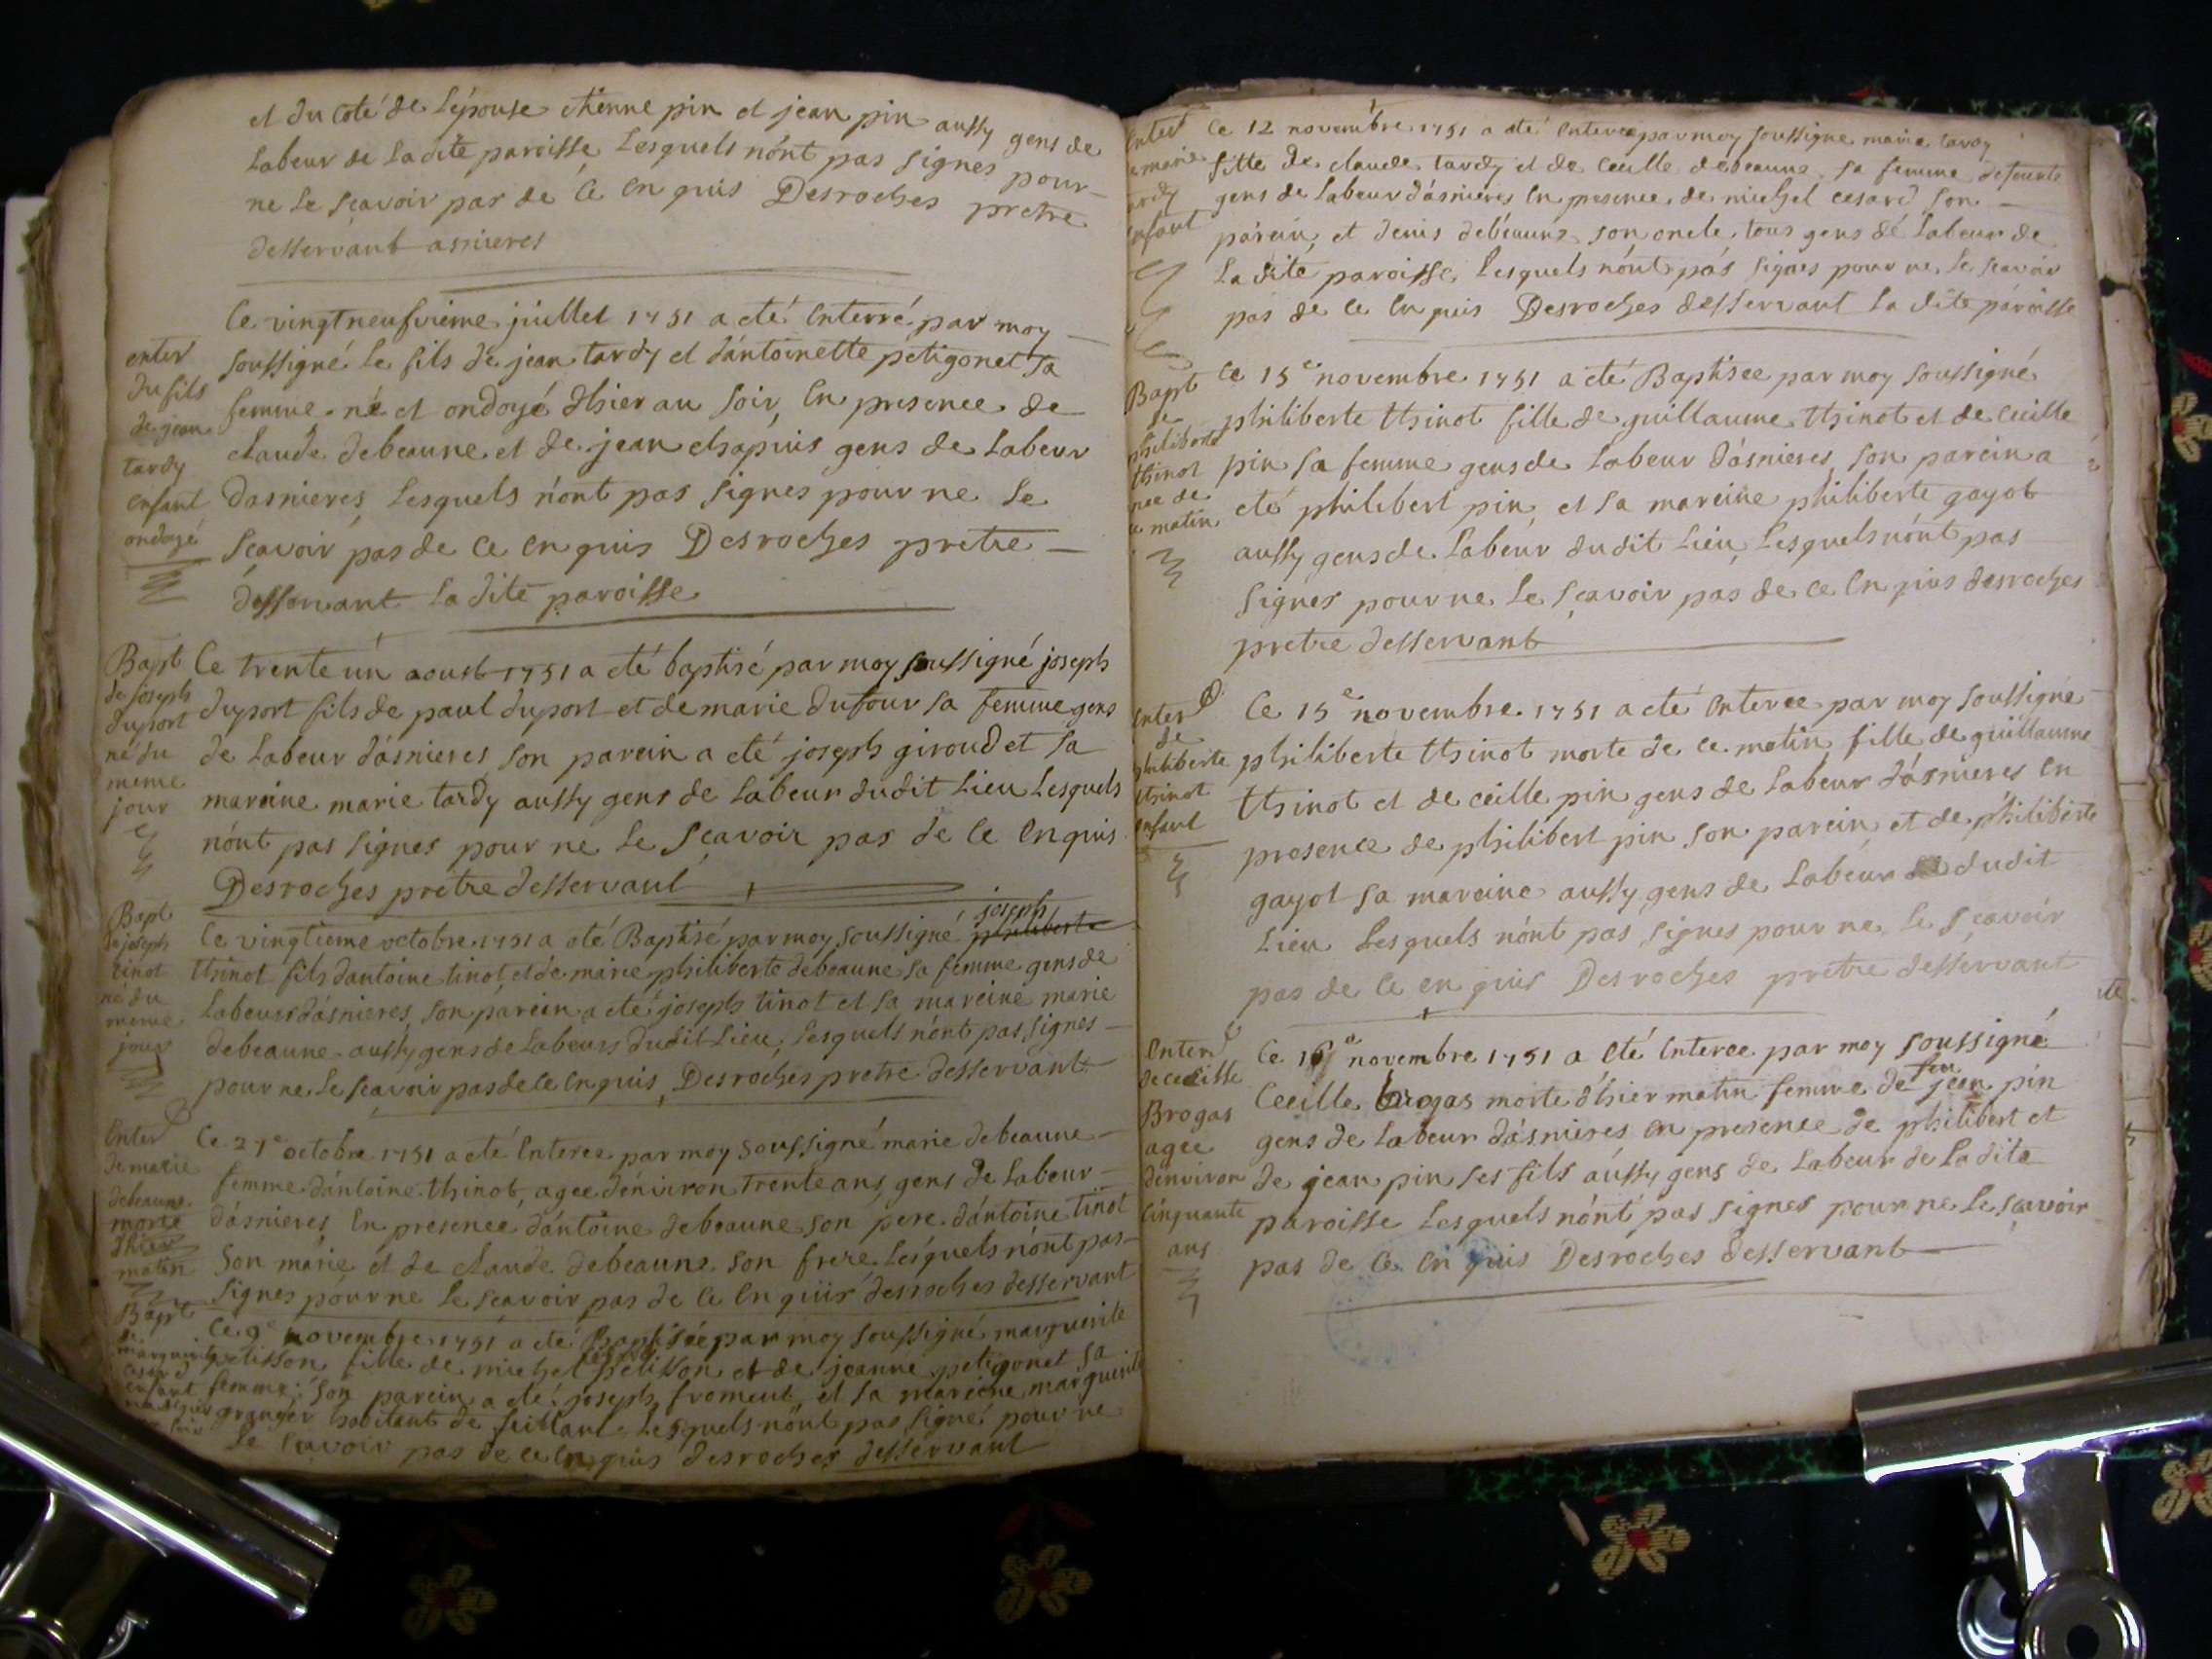 et du coté de Lépouse etienne pin et jean pin aussy gens de
Labeur de Ladite paroisse Lesquels nónt pas signes pour
ne le sçavoir pas de Ce enquis Desroches pretre
desservant asnieres
enter
du fils
de jean
tardy
enfant
ondoyé
Ce vingtneufvieme juillet 1751 a eté enterré par moy
soussigné Le fils de jean tardy et dántoinette petigonet sa
femme né et ondoyé dhier au soir, en presence de
claude debeaune et de jean chapuis gens de Labeur
dasnieres, Lesquels nónt pas signes pour ne Le
sçavoir pas de ce enquis Desroches pretre
desservant La dite paroisse
Bapt
de joseph
duport
né du
meme
jour
Ce trente un aoust 1751 a eté baptisé par moy soussigné joseph
duport fils de paul duport et de marie dufour sa femme gens
de Labeur dásnieres son parein a eté joseph giroud et sa
mareine marie tardy aussy gens de Labeur dudit Lieu Lesquels
nónt pas signes pour ne Le sçavoir pas de Ce enquis
Desroches prètre desservant
Bapt
de joseph
tinot
né du
meme
jour
Ce vingtieme octobre 1751 a eté Baptisé par moy soussigné philiberte joseph
thinot fils dantoine tinot, et de marie philiberte debeaune sa femme gens de
Labeurs dásnieres, son parein a eté joseph tinot et sa mareine marie
debeaune aussy gens de Labeurs dudit Lieu, Lesquels nónt pas signes
pour ne Le sçavoir pas de Ce enquis, Desroches pretre desservant
Enter
de marie
debeaune
morte
dhier
matin
Ce 21e octobre 1751 a eté enteree par moy soussigné marie debeaune
femme dántoine thinot, agee dénviron trente ans, gens de Labeur
dásnieres, en presence dántoine debeaune son pere dántoine tinot
son marie et de claude debeaune son frere Lesquels nónt pas
signes pour ne Le scavoir pas de Ce enquis desroches desservant
Bapt
de
marguerite
cesard
enfant
soir
Ce 9e novembre 1751 a eté Baptisée par moy soussigné marguerite
petisson fille de michel cesard petisson et de jeanne petigonet sa
femme; son parein a eté joseph froment, et sa mareine marguerite
granger habitant de fillant Lesquels nónt pas signé pour ne
Le scavoir pas de ce enquis desroches desservant
Enter
marie
tardy
enfant
Ce 12 novembre 1751 a eté enteree par moy soussigne marie tardy
fille de claude tardy et de Cecille debeaune sa femme defeunte
gens de Labeur dásnieres en presence de michel cesard son
parein, et denis debeaune son oncle, tous gens de Labeur de
La dite paroisse, Lesquels nónt pas signes pour ne le scavoir
pas de ce enquis Desroches desservant La dite paroisse
Bapt
de
philiberte
thinot
nee de
ce matin
Ce 15e novembre 1751 a eté Baptisee par moy soussigné
philiberte thinot fille de guillaume thinot et de cecille
pin sa femme gens de Labeur dásnieres, son parein a
eté philibert pin, et sa mareine philiberte gayot
aussy gens de Labeur dudit Lieu, Lesquels nónt pas
signes pour ne Le sçavoir pas de ce enquis desroches
pretre desservant
Enter
de
philiberte
thinot
enfant
Ce 15e novembre 1751 a eté enteree par moy soussigné
philiberte thinot morte de ce matin, fille de guillaume
thinot et de cecille pin gens de Labeur dásnieres en
presence de philibert pin son parein, et de philiberte
gayot sa mareine aussy gens de Labeur dudit
Lieu Lesquels nónt pas signes pour ne Le sçavoir
pas de Ce enquis Desroches pretre desservant
Enter
de cecille
Brogas
agee
dénviron
cinquante
ans
Ce 16e novembre 1751 a eté enteree par moy soussigné
Cecille brogas morte dhier matin femme de feu jean pin
gens de Labeur dásnieres en presence de philibert et
de jean pin ses fils aussy gens de Labeur de Ladite
paroisse Lesquels nónt pas signes pour ne Le sçavoir
pas de Ce enquis Desroches desservant